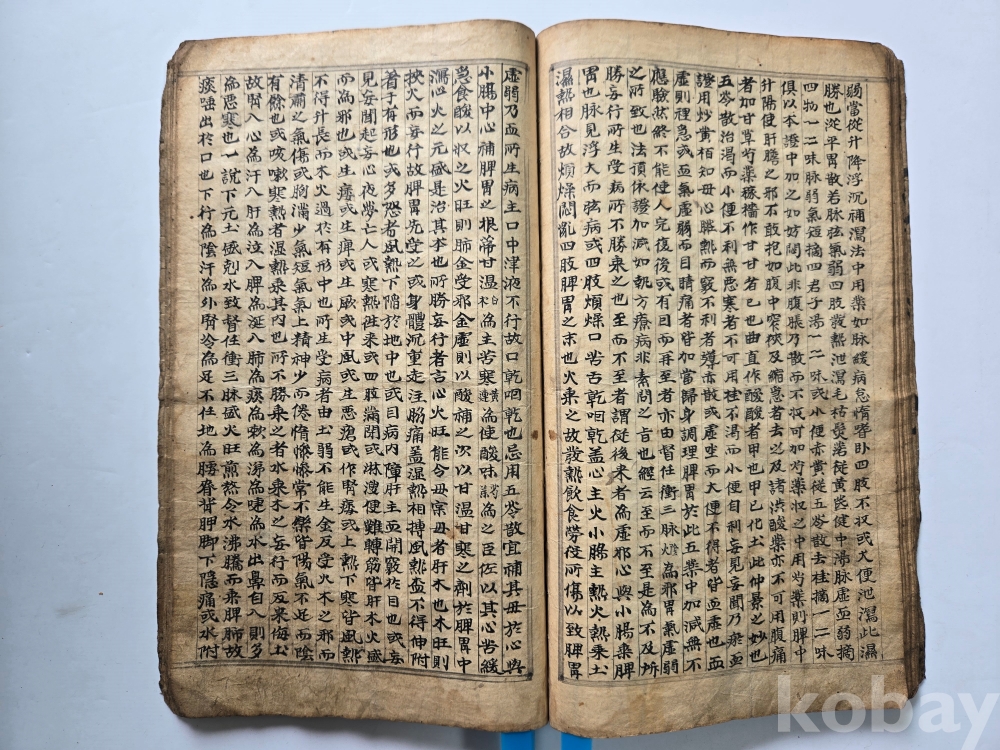 瘍當從升降浮沉補瀉法中用藥如脉緩病怠惰嗜卧四肢不収或大便泄瀉此濕
勝也從平胃散若脉弦氣弱四肢發熱泄瀉毛枯髮落從黄芪健中湯脉虛血弱摘
四物一二味脉弱氣短摘四君子湯一二味或小便赤黄從五苓散去桂摘一二味
俱以本證中加之如妨閟此非腹脹乃散而不収可加芍藥収之中用芍藥則脾中
升陽使肝膽之邪不敢犯如腹中窄狹及縮急者去之及諸洪酸藥亦不可用腹痛
者加甘草芍藥稼穡作甘甘者己也曲直作酸酸者甲也甲己化土此仲景之妙也
五岺散治渴而小便不利無惡寒者不可用桂不渴而小便自利妄見妄聞乃瘀血
證用炒黄栢知母心臟熱而竅不利者導赤散或虛坐而大便不得者皆血虛也血
虛則裡急或血氣虛弱而目睛痛者皆加當歸身調理脾胃於此五藥中加减無不
應驗然終不能使人完復後或有因而再至者亦由督任衝三脉為邪胃氣虛弱
之所致也法湏依證加减如執方療病非素問之旨也經云至而不至是為不及所
勝妄行所生受病所不勝乗之也至而不至者謂從後来者為虛邪心與小腸乗脾
胃也脉見浮大而弦病或四肢煩燥口苦舌乾咽乾盖心主火小腸主熱火熱乗土
濕熱相合故煩燥悶亂四肢脾胃之末也火乗之故發熱飲食勞役所傷以致脾胃
虛弱乃血所生病主口中津液不行故口乾咽乾也忌用五苓散宜補其母於心與
小腸中心補脾胃之根落甘温白朮為主苦寒黄連為使酸味芍藥為之臣佐以其心苦緩
急食酸以収之火旺則肺金受邪金虛則以酸補之次以甘温甘寒之劑於脾胃中
瀉心火之元盛是治其本也所勝妄行者言心火旺能令母実母者肝木也木旺則
挾火而妄行故脾胃先受之或身體沉重走注腸痛盖湿熱相搏風熱欝不得伸附
着于有形也或多怒者風熱下陷於地中也或目病内障肝主血開竅於目也或妄
見妄聞起妄心夜夢亡人或寒熱徃来或四肢滿閉或淋溲便難轉筋皆肝木火盛
而為邪也或生痿或生痺或生厥或中風或生惡瘡或作腎痿或上熱下寒皆風熱
不得升長而木火過於有形中也所生受病者由土弱不能生金反受火木之邪而
清肅之氣傷或胸滿少氣短氣氣上精神少而倦惰慘慘常不樂皆陽氣不足而陰
有餘也或咳嗽寒熱者湿熱乗其内也所不勝乗之者水乗木之妄行而反来侮土
故腎入心為汗入肝為泣入脾為涎入肺為痰為欬為涕為嚏為水出鼻自入則多
為惡寒也一說下元土盛剋水致督任衝三脉盛火旺煎熬令水沸騰而来脾肺故
痰唾出於口也下行為陰汗為外腎冷為足不任地為勝脊背胛脚下隱痛或水附
kobay